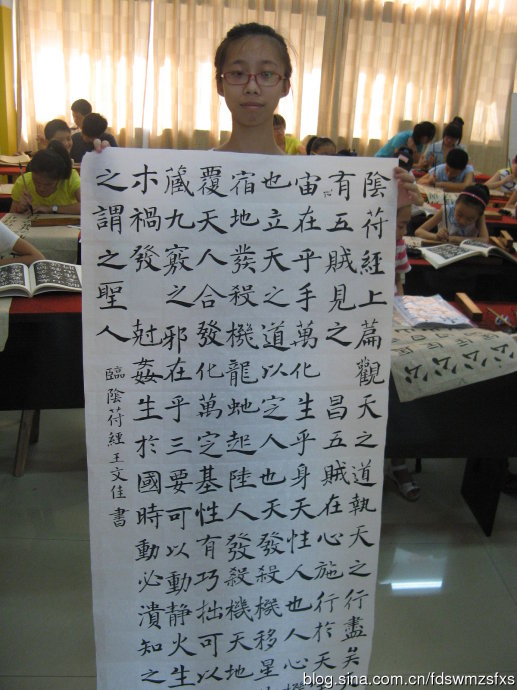 陰符經上篇觀天之道執天之行盡矣
有五賊見之昌五賊在心施行於天
宙在乎手萬化生乎身天性人也人心機
也立天之道以定人也天發殺機移星
宿地發殺機龍蛇起陸人發殺機天地
覆天人合發化萬定基性有巧拙可以
藏九竅之邪在乎三要可以動静火生
木禍發尅姦生於國時動必潰知之
之謂之聖人
臨陰符經王文佳書
blog.sina.com.cn/fdswmzsfxs